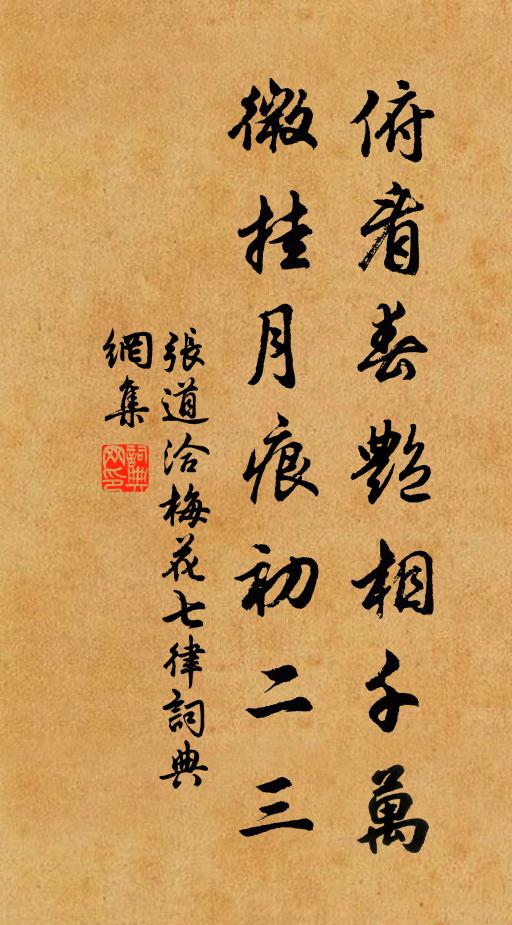 俯看春艷相千萬
微挂月痕初二三
張道洽梅花七律詞典
網集
詞典
網印